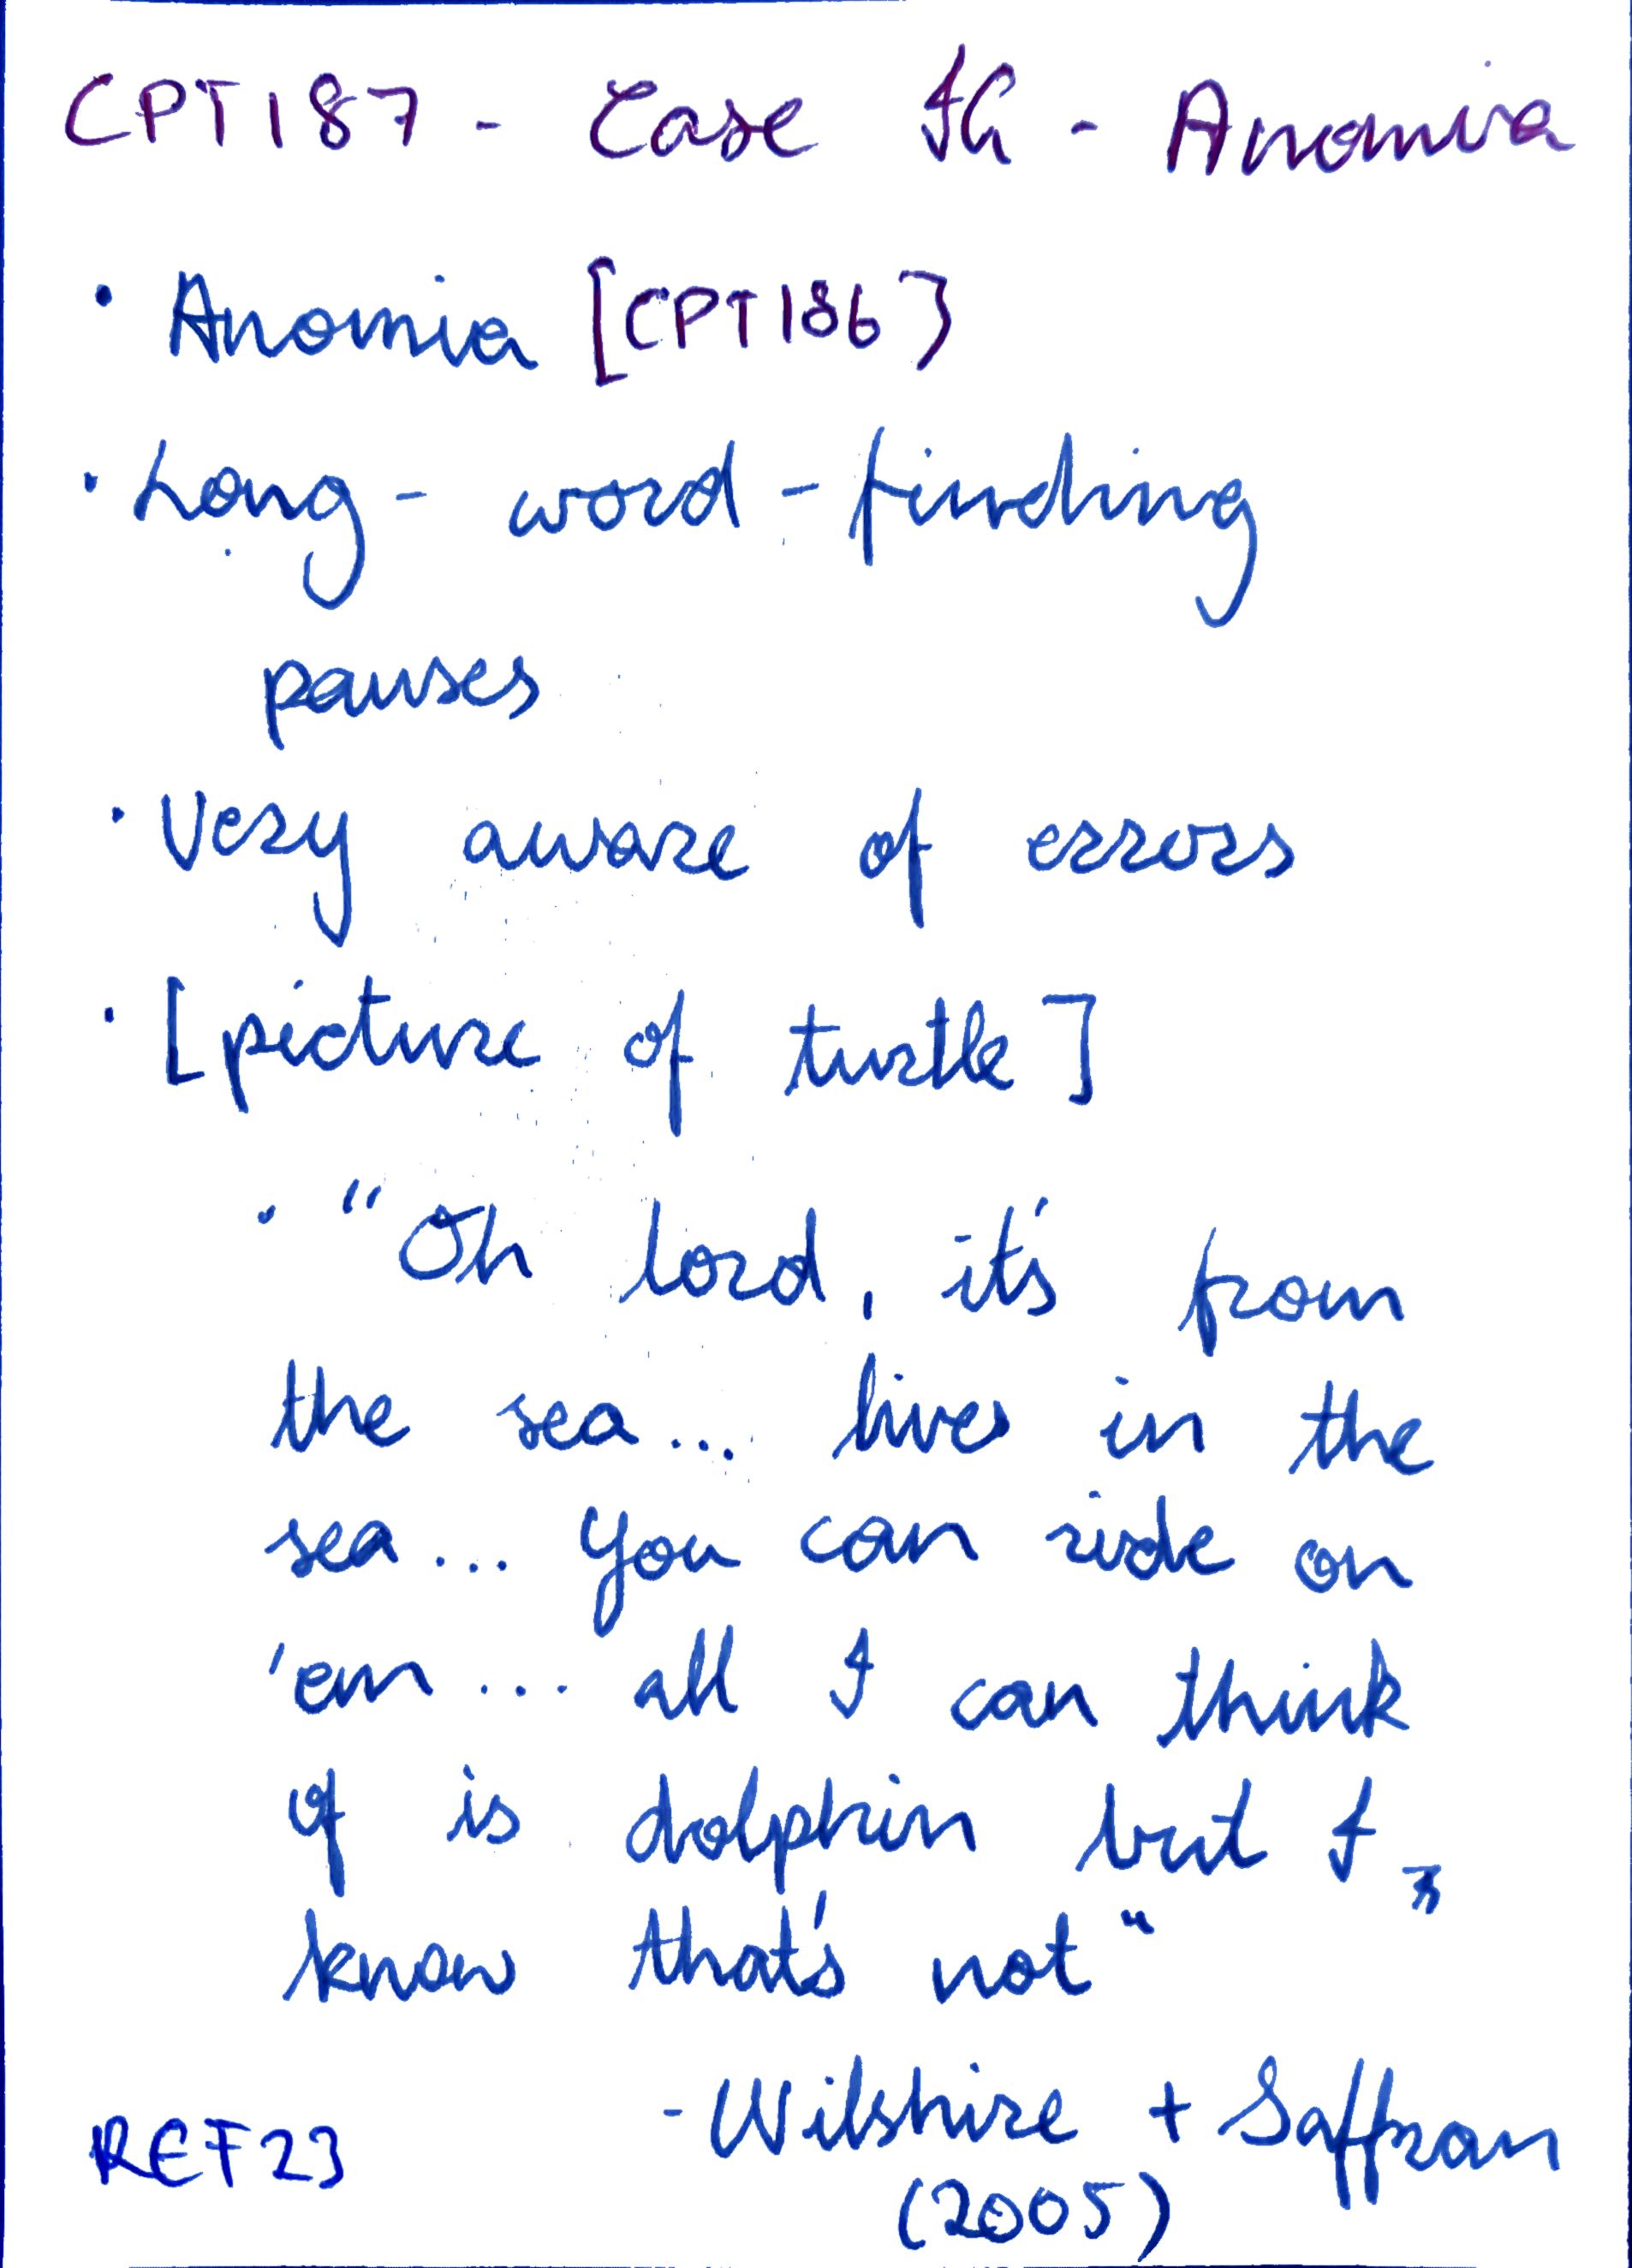 CPT187 - Case IG - Anomia
· Anomia [CPT186]
· Long - word - finding
pauses
· Very aware of errors
· [picture of turtle]
· "Oh lord, it's from
the sea... lives in the
sea... you can ride on
'em... all I can think
of is dolphin but I
know that's not"
- Wilshire + Saffran
REF23
(2005)